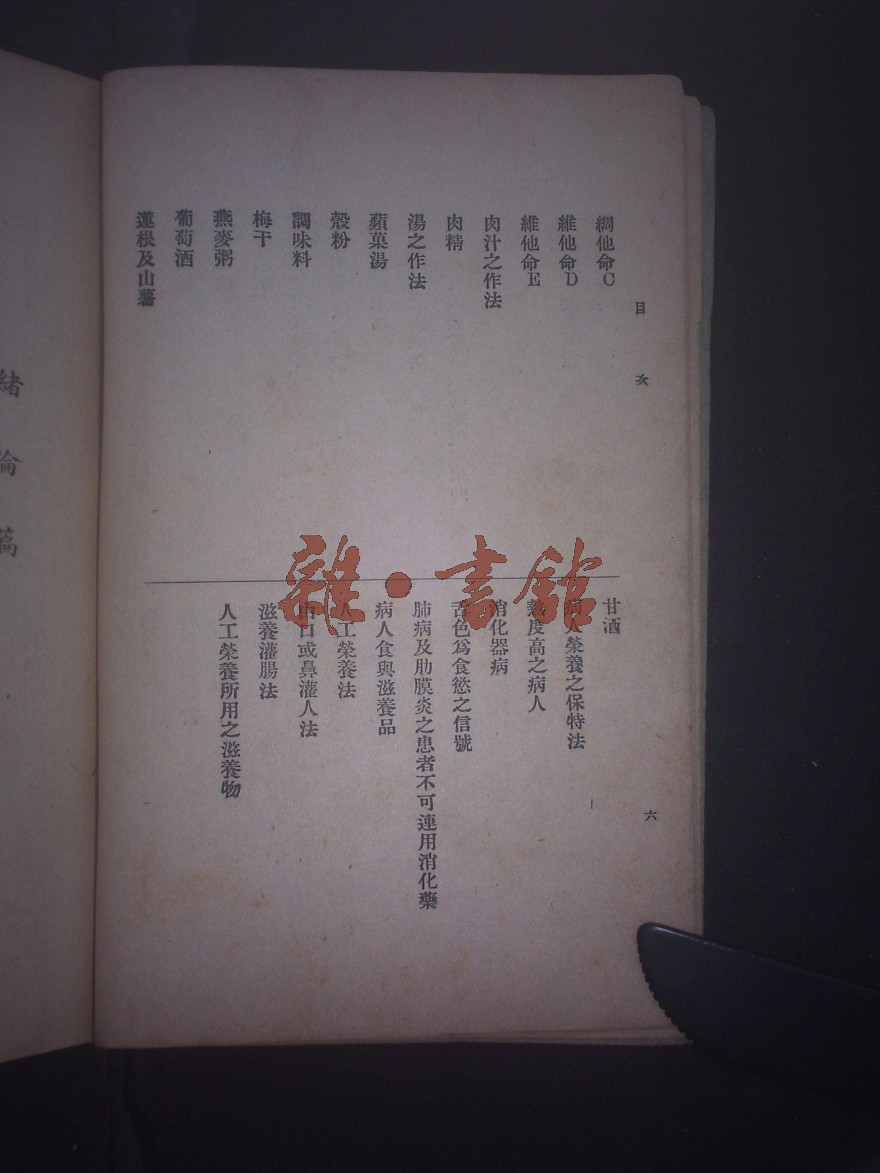 目次
綢他命C
維他命D
維他命E
肉汁之作法
肉精
湯之作法
蘋菓湯
殼粉
調味料
梅干
燕麥粥
葡萄酒
蓮根及山薯
甘酒
病人榮養之保特法
熱度高之病人
消化器病
舌色爲食慾之信號
肺病及肋膜炎之患者不可連用消化藥
病人食與滋養品
人工榮養法
由口或鼻灌人法
滋養灌腸法
人工榮養所用之滋養物
六
緒論篇
雜·書館